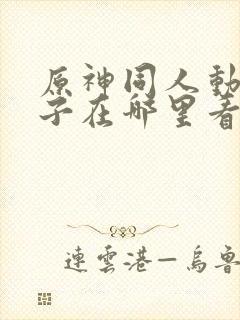 原神同人動
子在哪里看
連雲港—烏魯